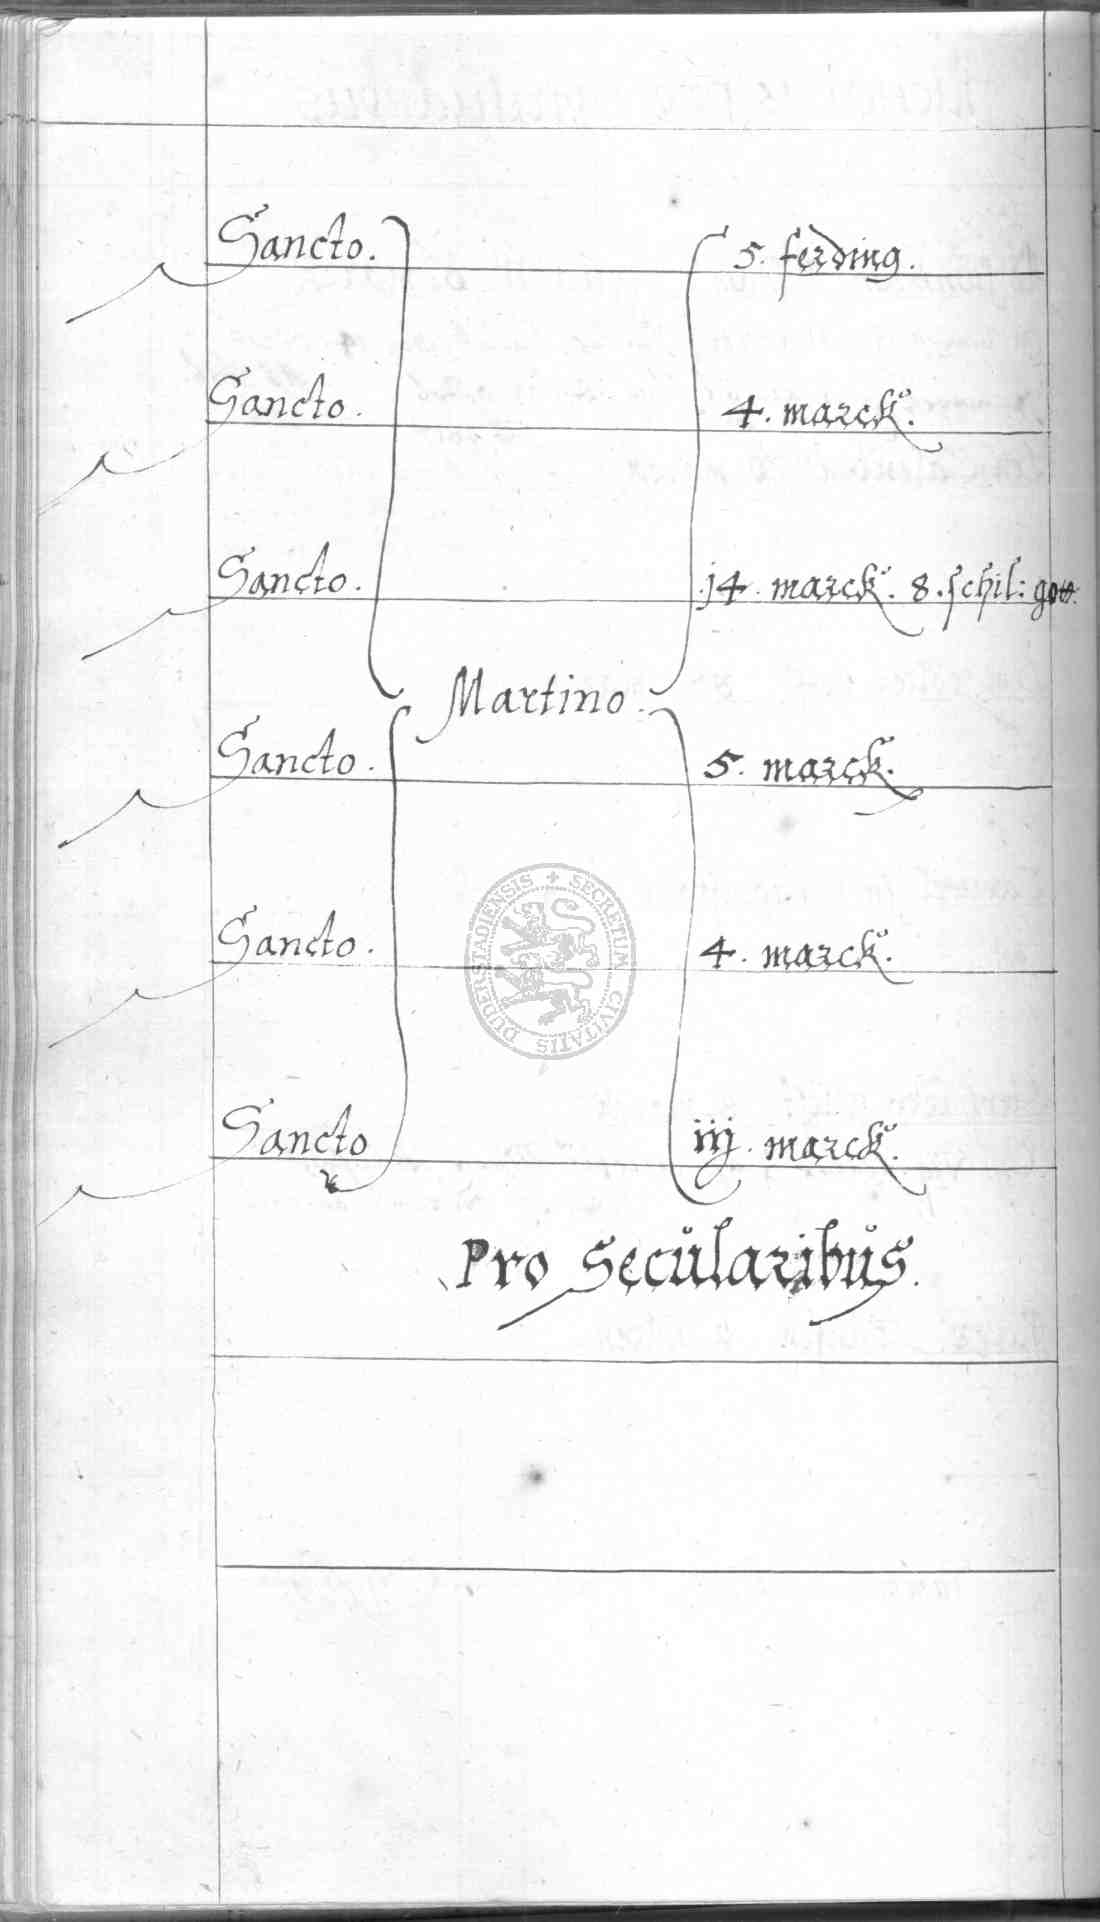 Sancto. 5. ferding.
Sancto. 4. marck.
Sancto. j4. marck. 8. schil: gott.
Martino.
Sancto. 5. marck.
Sancto. 4. marck.
SECRETUM CIVITATIS DUDERSTADIENSIS +
Sancto iij. marck.
Pro Secularibus.